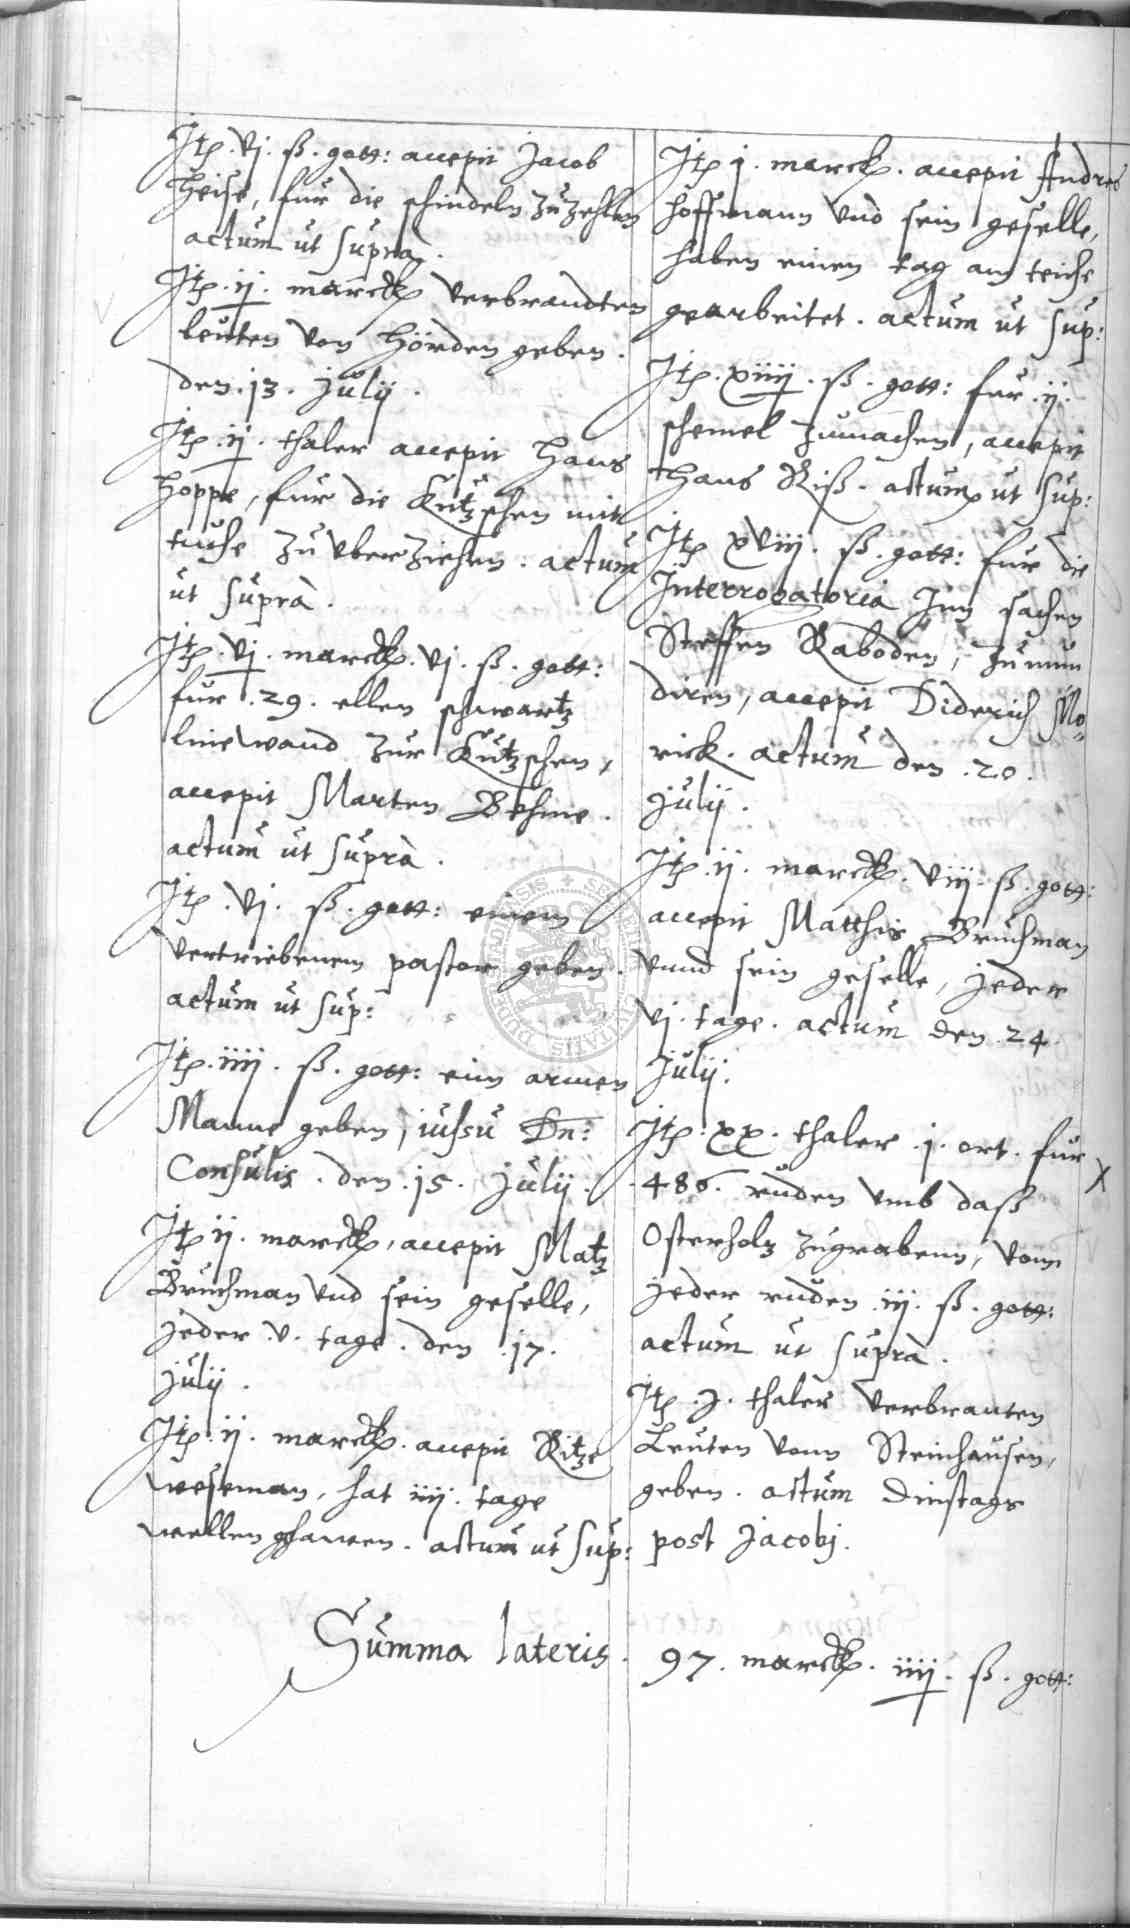 Itp. vj. ß. gott: accepit Jacob
Heise, fur die schindeln zu zehlen
actum ut supra.
Itp. ij. marck verbrandten
leuten von Hörden geben.
den. 13. Julij.
Itp. ij. thaler accepit Hans
Hoppe, fur die Kutzschen mit
tuche zu uberziehen. actum
ut suprà.
Itp. vj. marck. vj. ß. gott:
fur. 29. ellen schwartz
linewand zur Kutzschen,
accepit Marten Behme.
actum ut suprà.
Itp. vj. ß. gott: einem
vertriebenem pastor geben.
actum ut sup:
Itp. iiij. ß. gott: eim armen
Manne geben, iussu Dn:
Consulis. den. 15. Julij.
Itp ij. marck, accepit Matz
Bruchman vnd sein geselle,
jeder. v. tage. den. 17.
Julij.
Itp. ij. marck. accepit Ritze
weseman, hat iiij. tage
wellen ghawen. actum ut sup:
Itp j. marck. accepit Andres
Hoffmann vnd sein geselle,
haben einen tag am teiche
gearbeitet. actum ut sup:
Itp. xiiij. ß. gott: fur. ij.
schemel zumachen, accepit
Hans Riß. actum ut sup:
Itp xviij. ß. gott: fur die
Interrogatoria Inn sachen
Steffen Raboden, zu mun
diren, accepit Diderich Mo„
rick. actum den. 20.
Julij.
Itp. ij. marck. viij. ß. gott:
accepit Matthis Bruchman
vnnd sein geselle, jeder
vj. tage. actum den. 24.
Julij.
Itp. xx. thaler. j. ort. fur
. 486. ruden vmb daß
Osterholz zugrabenn, vonn
jeder ruden. iij. ß. gott:
actum ut suprà.
Itp. j. thaler verbranten
Leuten vonn Steinhausen,
geben. actum Dinstags
post Jacobj.
Summa lateris. 97. marck. iiij. ß. gott: